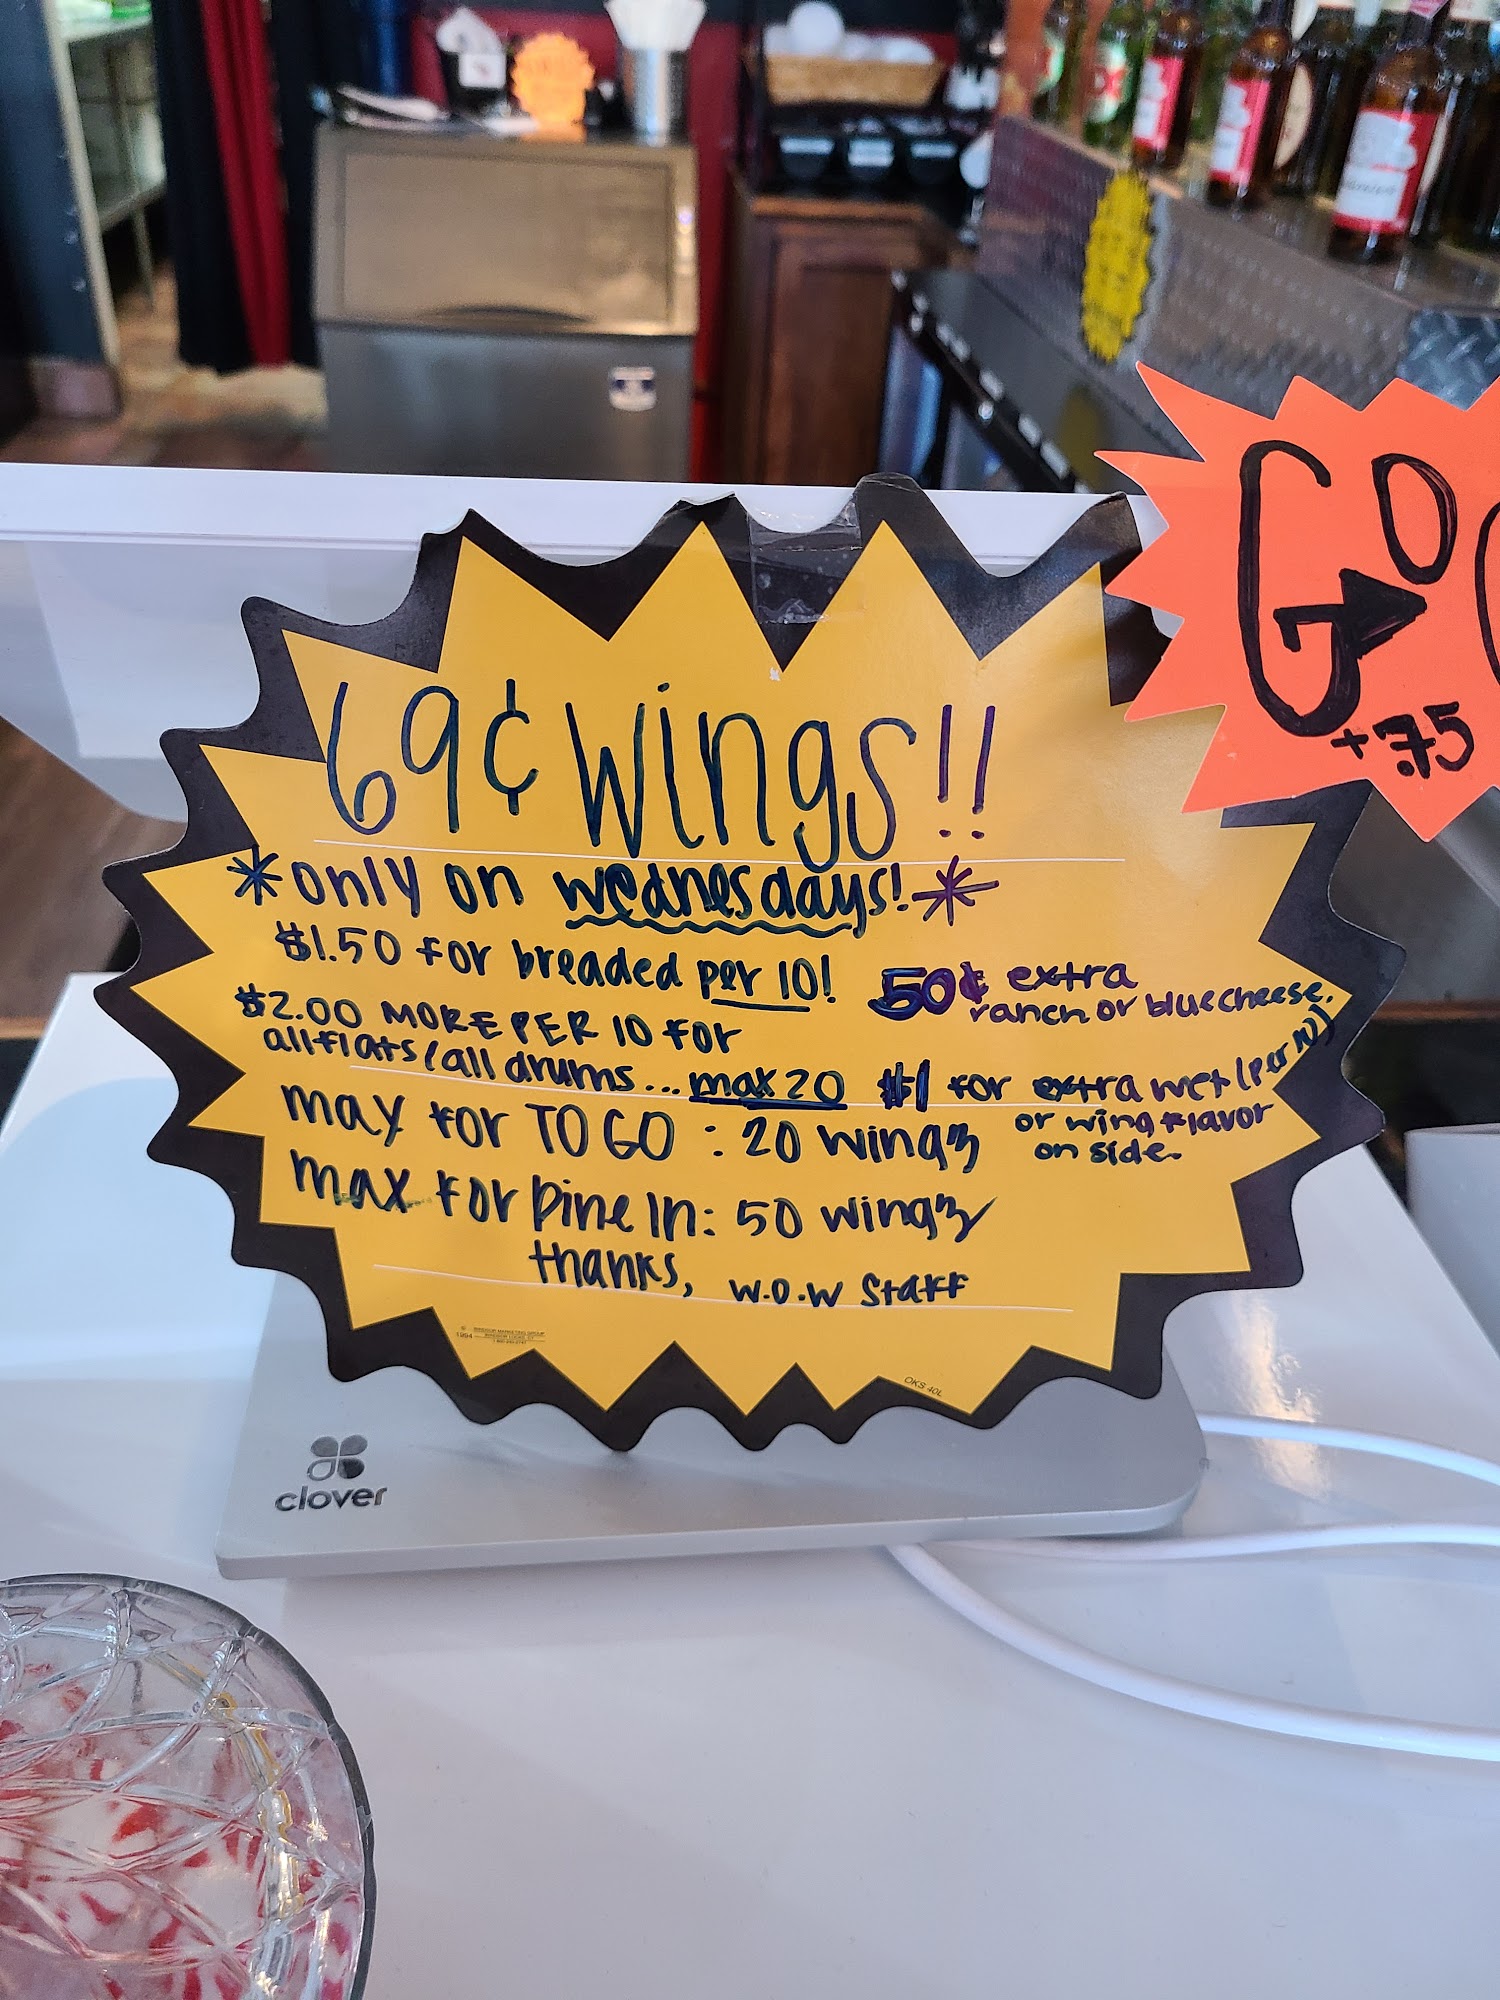 69¢ wings!!
*only on wednesdays!*
$1.50 for breaded per 10!
50¢ extra
ranch or bluecheese.
$2.00 MORE PER 10 FOR
all flats/all drums... max 20
$1 for extra wet (per 10)
or wing flavor
on side.
max for TO GO : 20 wings
max for Dine In: 50 wings
thanks, w.o.w staff
1994
OKS 40L
GO
+.75
clover